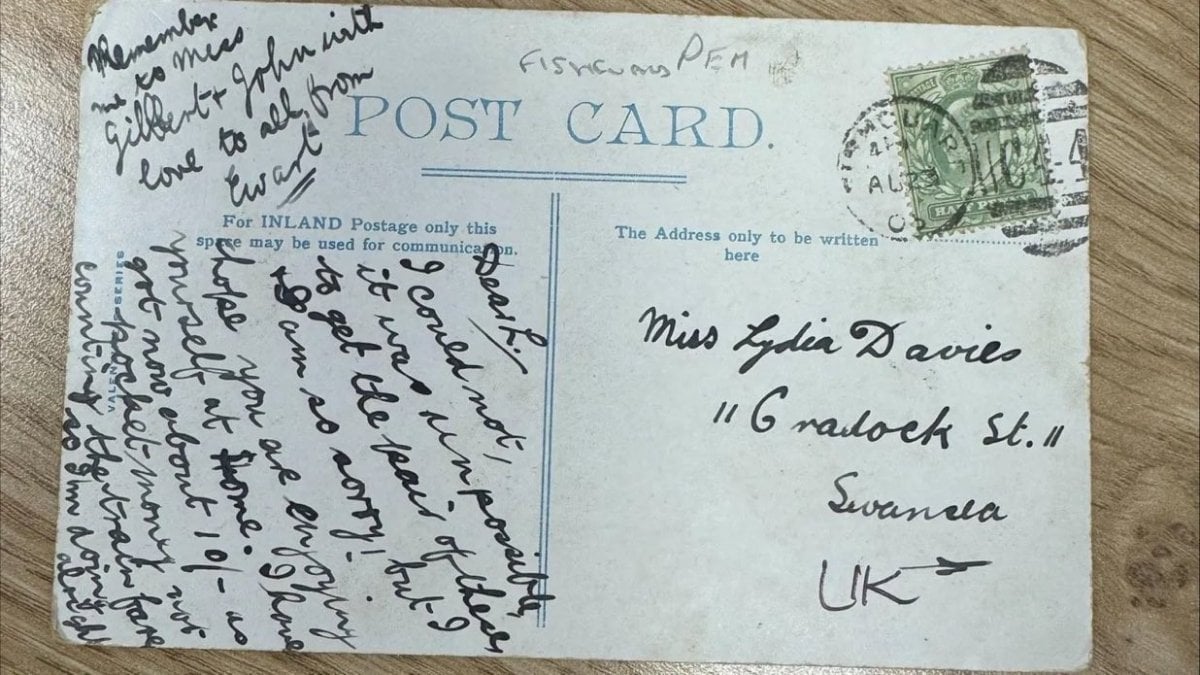 Remember
me to Miss
Gilbert & John with
love to all from
Ewart
FISHGUARD PEM
POST CARD.
For INLAND Postage only this
space may be used for communication.
The Address only to be written
here
Dear L.,
I could not,
it was impossible,
to get the pair of these
& I am so sorry! but I
hope you are enjoying
yourself at home. I have
got now about 10/- as
pocket-money not
counting the train fare
so I'm doing alright
VALENTINES SERIES
FISHGUARD
AU 3
HALFPENNY
Miss Lydia Davies
"11 Cradock St."
Swansea
UK